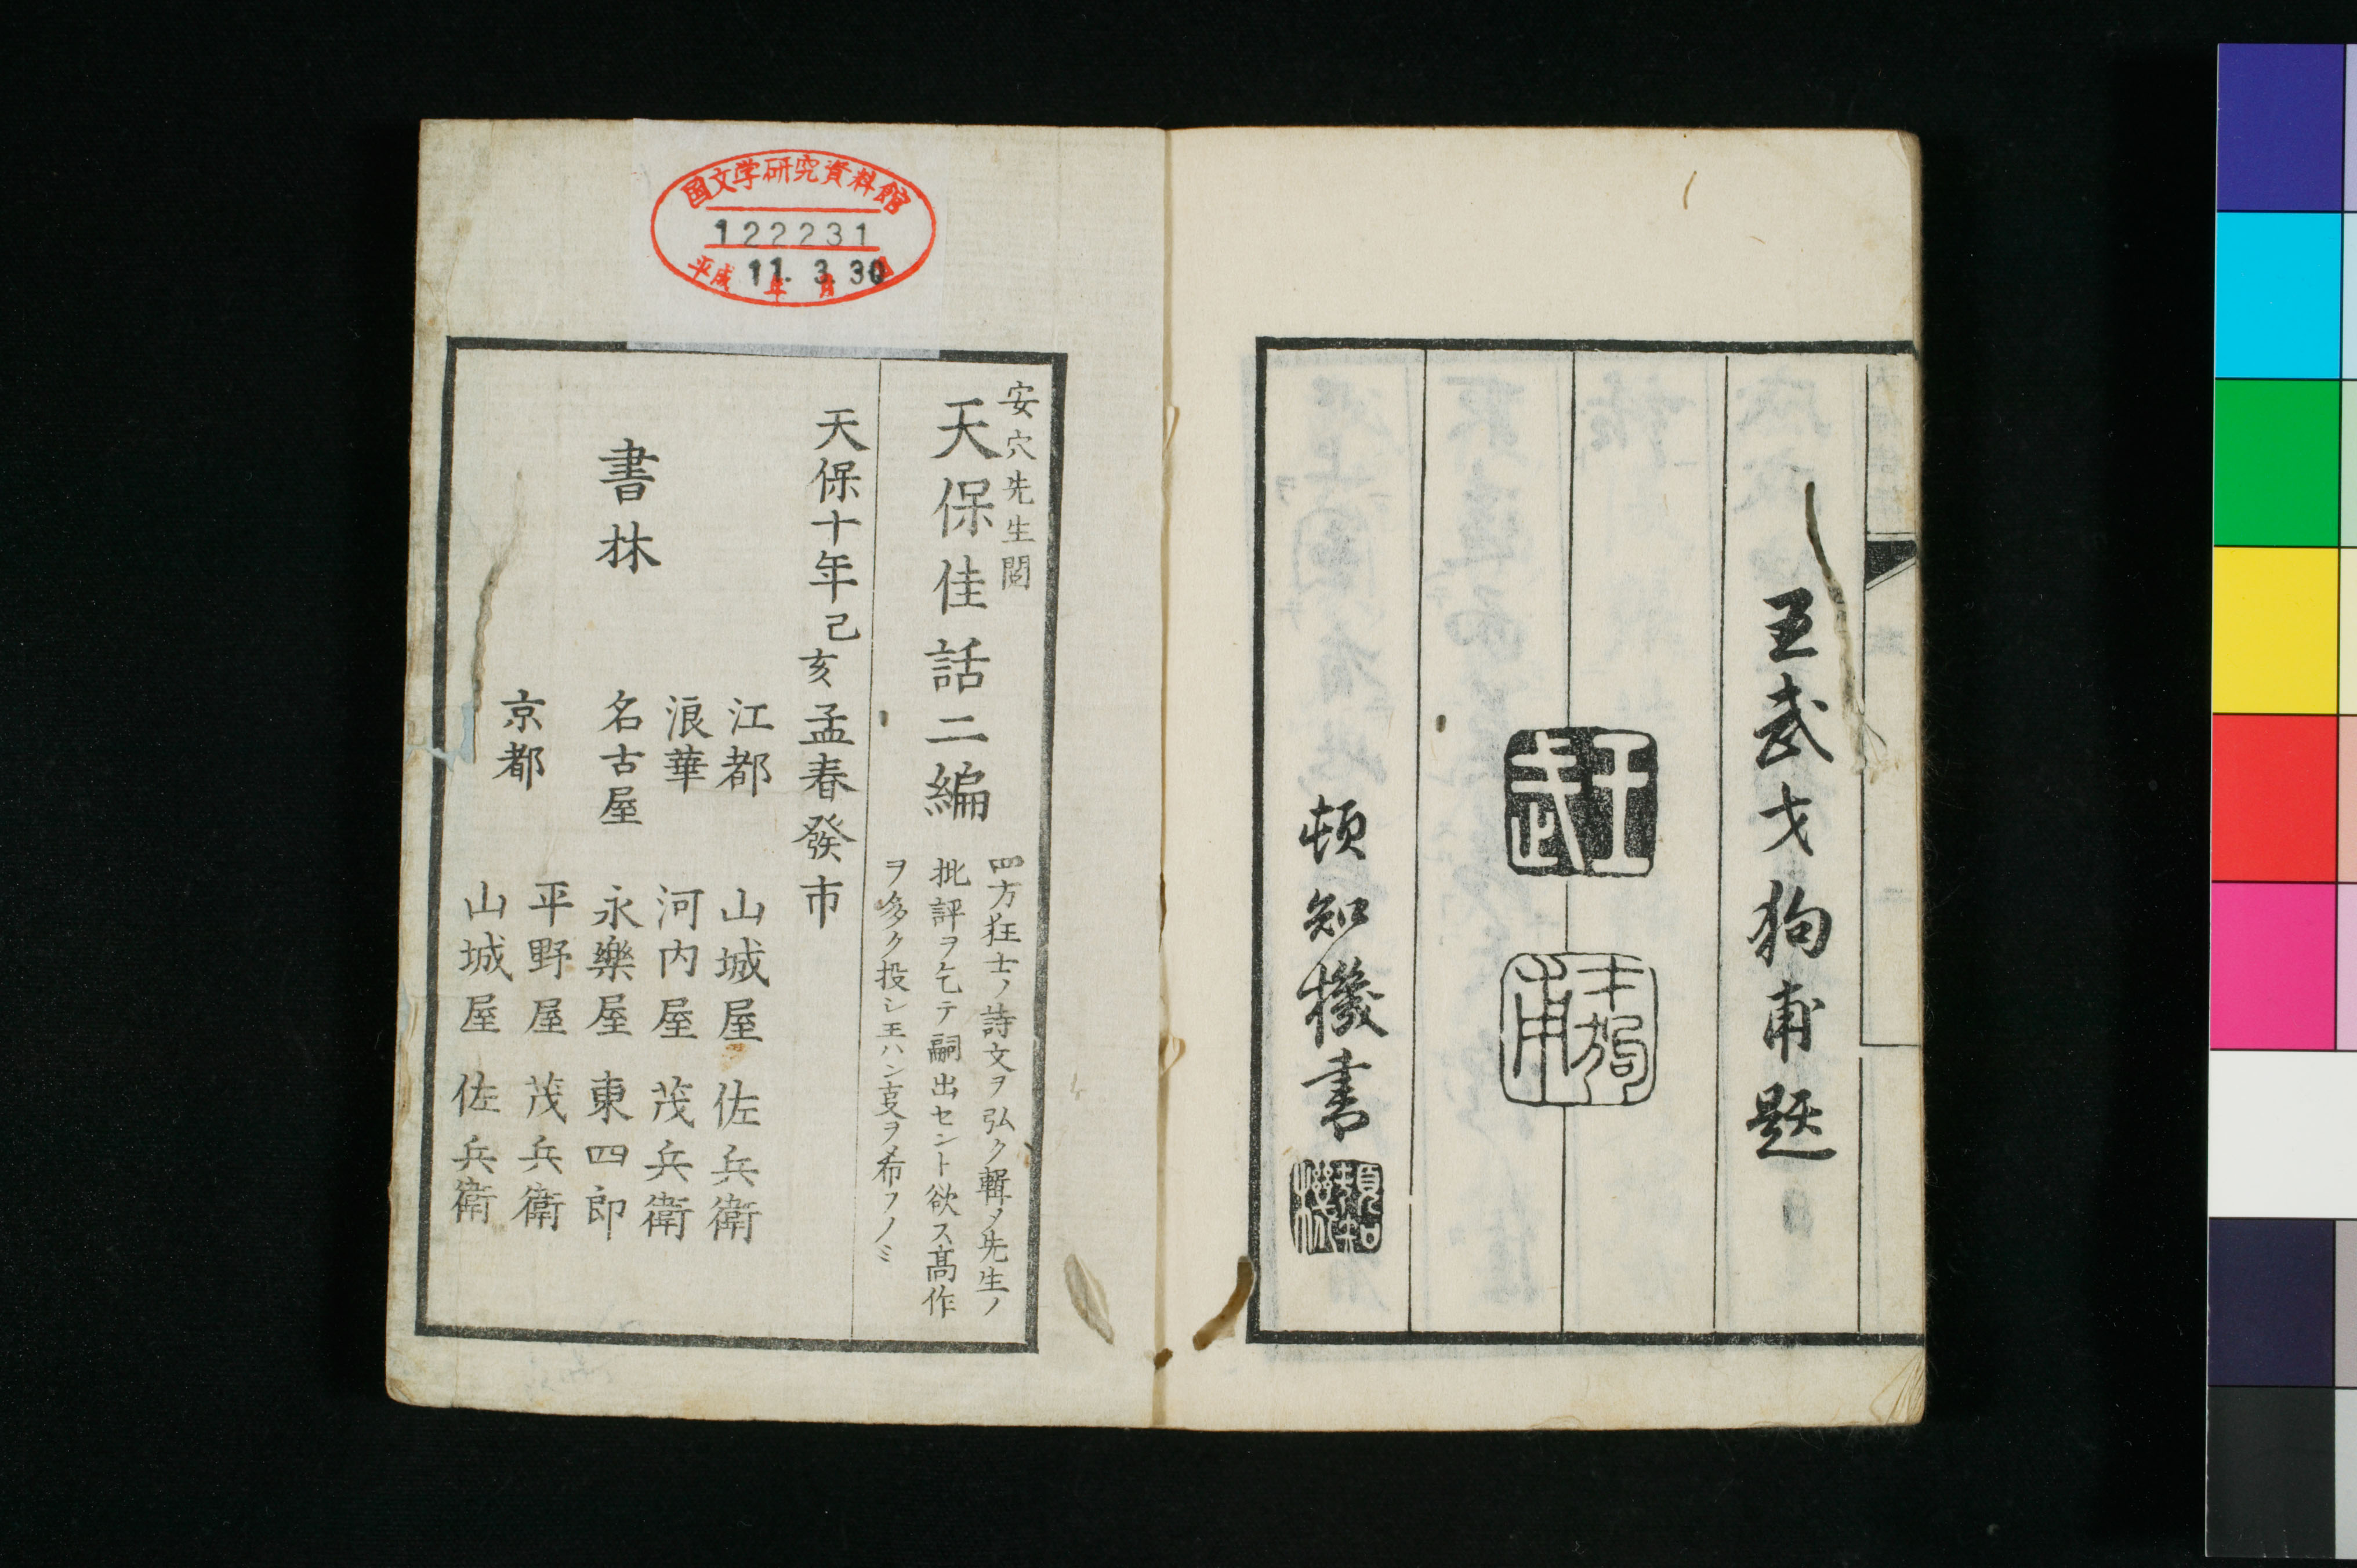 王武才狗甫題
王武
才狗甫
頓知機書
頓知機
国文学研究資料館
122231
平成 11年 3月 30日
安穴先生閲
天保佳話二編
四方狂士ノ詩文ヲ弘ク輯メ先生ノ
批評ヲ乞テ嗣出セント欲ス髙作
ヲ多ク投シ玉ハン㕝ヲ希フノミ
天保十年己亥孟春發市
書林
江都 山城屋佐兵衛
浪華 河内屋茂兵衛
名古屋 永樂屋東四郎
京都 平野屋茂兵衛
山城屋佐兵衛